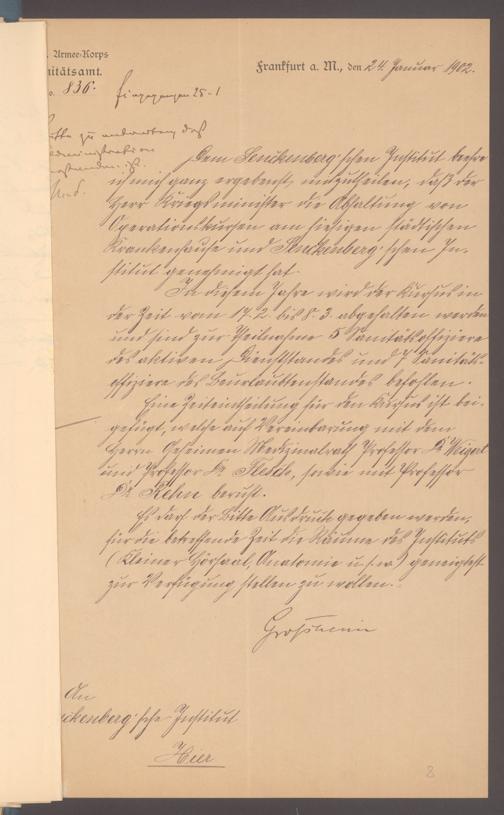 Armee-Korps
nitätsamt.
836.
Frankfurt a. M., den 24. Januar 1902.
Eingegangen 25-1
zu antworten, daß
Dem Senckenberg'schen Institut beehre
ich mich ganz ergebenst mitzutheilen, daß der
Herr Kriegsminister die Abhaltung von
Operationskursen am hiesigen städtischen
Krankenhause und Senckenberg'schen In-
stitut genehmigt hat.
In diesem Jahre wird der Kursus in
der Zeit vom 17. 2. bis 8. 3. abgehalten werden
und sind zur Theilnahme 5 Sanitätsoffiziere
des aktiven Dienststandes und 7 Sanitäts-
offiziere des Beurlaubtenstandes befohlen.
Eine Zeiteintheilung für den Kursus ist bei-
gefügt, welche auf Vereinbarung mit dem
Herrn Geheimen Medizinalrath Professor Dr Weigert
und Professor Dr Flesch, sowie mit Professor
Dr Rehn beruht.
Es darf der Bitte Ausdruck gegeben werden,
für die betreffende Zeit die Räume des Instituts
(Kleiner Hörsaal, Anatomie u.s.w.) geneigtest
zur Verfügung stellen zu wollen.
Grossheim
An
ckenberg'sche Institut
Hier
8